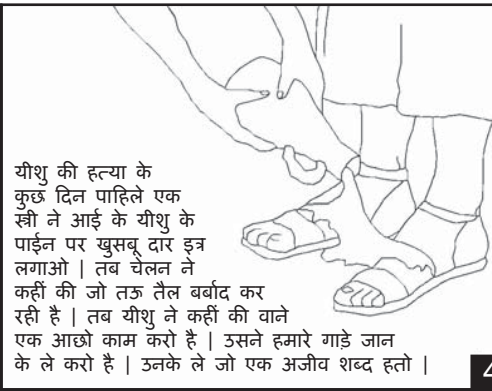 यीशु की हत्या के
कुछ दिन पाहिले एक
स्त्री ने आई के यीशु के
पाईन पर खुसबू दार इत्र
लगाओ | तब चेलन ने
कहीं की जो तऊ तैल बर्बाद कर
रही है | तब यीशु ने कहीं की वाने
एक आछो काम करो है | उसने हमारे गाड़े जान
के ले करो है | उनके ले जो एक अजीव शब्द हतो |
4